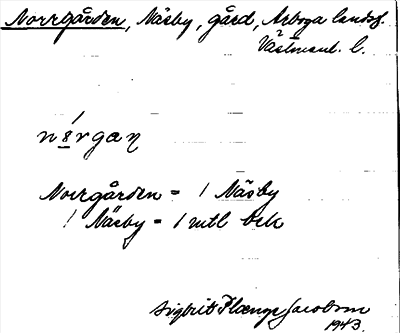 Norrgården, Näsby, gård, Arboga landsf.
Västmanl. l.
Norrgården = 1 Näsby
1 Näsby = 1 mtl
Sigbrit Plænge Jacobson
1943.